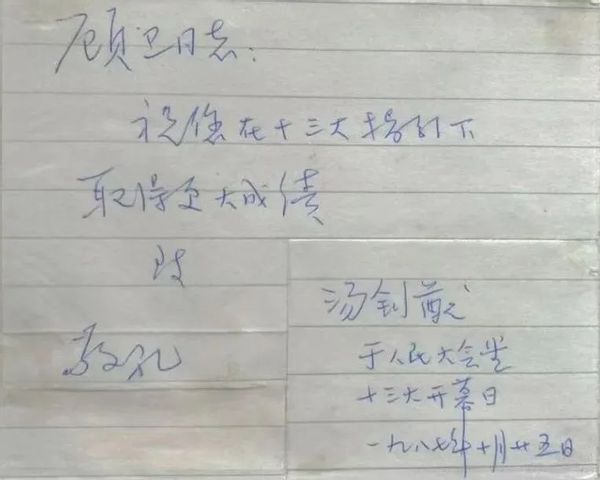 顾卫同志:
祝您在十三大指引下
取得更大成绩
致
敬礼
汤钊猷
于人民大会堂
十三大开幕日
一九八七年十月廿五日